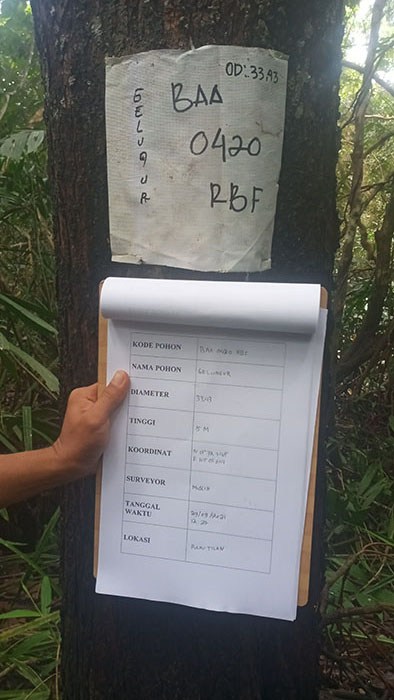 OD: 33.93
GELUGUR
BAA
0420
RBF
KODE POHON BAA 0420 RBF
NAMA POHON GELUGUR
DIAMETER
TINGGI 5 M
KOORDINAT
SURVEYOR
TANGGAL
WAKTU
LOKASI